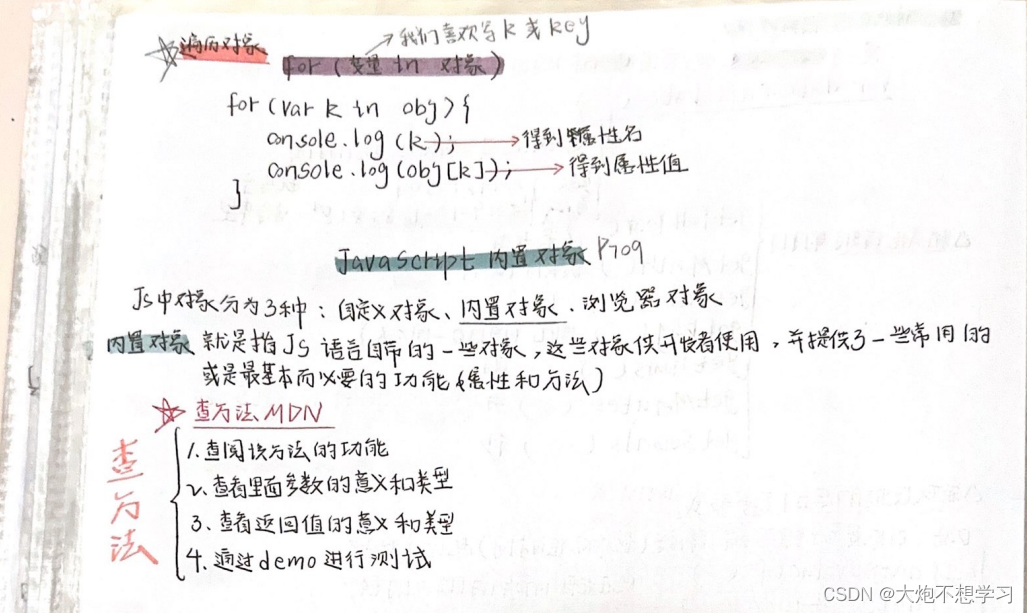 我们喜欢写k或key
遍历对象
for (变量 in 对象)
for (var k in obj) {
console.log (k); 得到属性名
console.log (obj[k]); 得到属性值
}
JavaScript 内置对象 P109
Js中对象分为3种：自定义对象、内置对象、浏览器对象
内置对象 就是指JS 语言自带的一些对象，这些对象供开发者使用，并提供了一些常用的
或是最基本而必要的功能(属性和方法)
查方法MDN
查方法
1.查阅该方法的功能
2.查看里面参数的意义和类型
3.查看返回值的意义和类型
4.通过demo进行测试
CSDN @大炮不想学习